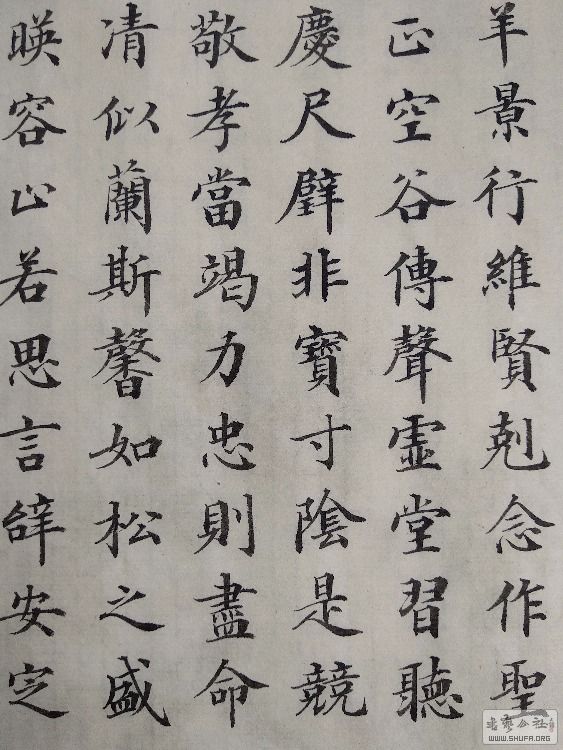 羊景行維賢剋念作聖
正空谷傳聲虛堂習聽
慶尺璧非寶寸陰是競
敬孝當竭力忠則盡命
凊似蘭斯馨如松之盛
暎容止若思言辭安定
書藝公社
WWW.SHUFA.ORG